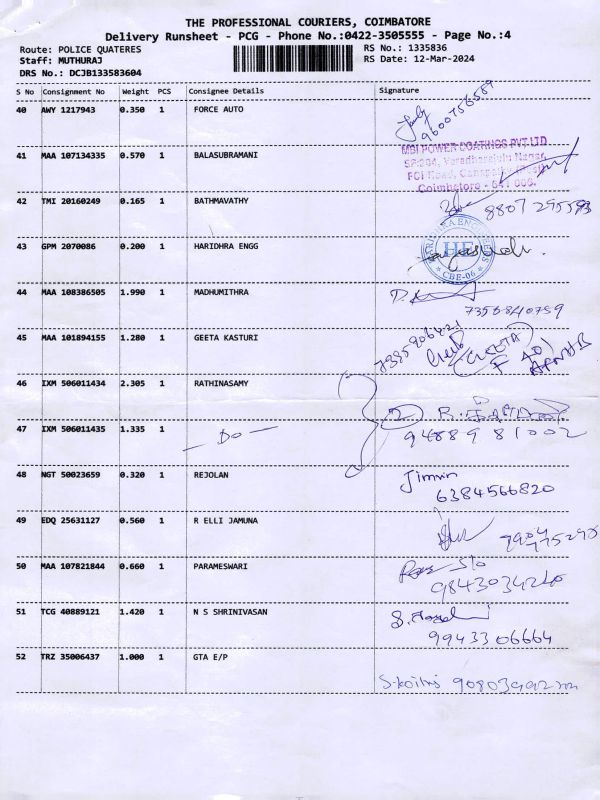 THE PROFESSIONAL COURIERS, COIMBATORE
Delivery Runsheet - PCG - Phone No.:0422-3505555 - Page No.:4
Route: POLICE QUATERES RS No.: 1335836
Staff: MUTHURAJ RS Date: 12-Mar-2024
DRS No.: DCJB133583604
S No Consignment No Weight PCS Consignee Details Signature
40 AWY 1217943 0.350 1 FORCE AUTO
41 MAA 107134335 0.570 1 BALASUBRAMANI
MBI POWER COATINGS PVT LTD
Coimbatore - 641 006.
42 TMI 20160249 0.165 1 BATHMAVATHY
8807295593
43 GPM 2070086 0.200 1 HARIDHRA ENGG
HE
CBE-06
44 MAA 108386505 1.990 1 MADHUMITHRA
7358840759
45 MAA 101894155 1.280 1 GEETA KASTURI
7395906421
(GEETA)
F 401
46 IXM 506011434 2.305 1 RATHINASAMY
2
47 IXM 506011435 1.335 1
- Do -
9488981002
48 NGT 50023659 0.320 1 REJOLAN
Jimin
6384566820
49 EDQ 25631127 0.560 1 R ELLI JAMUNA
50 MAA 107821844 0.660 1 PARAMESWARI
S/o
51 TCG 40889121 1.420 1 N S SHRINIVASAN
9943306664
52 TRZ 35006437 1.000 1 GTA E/P